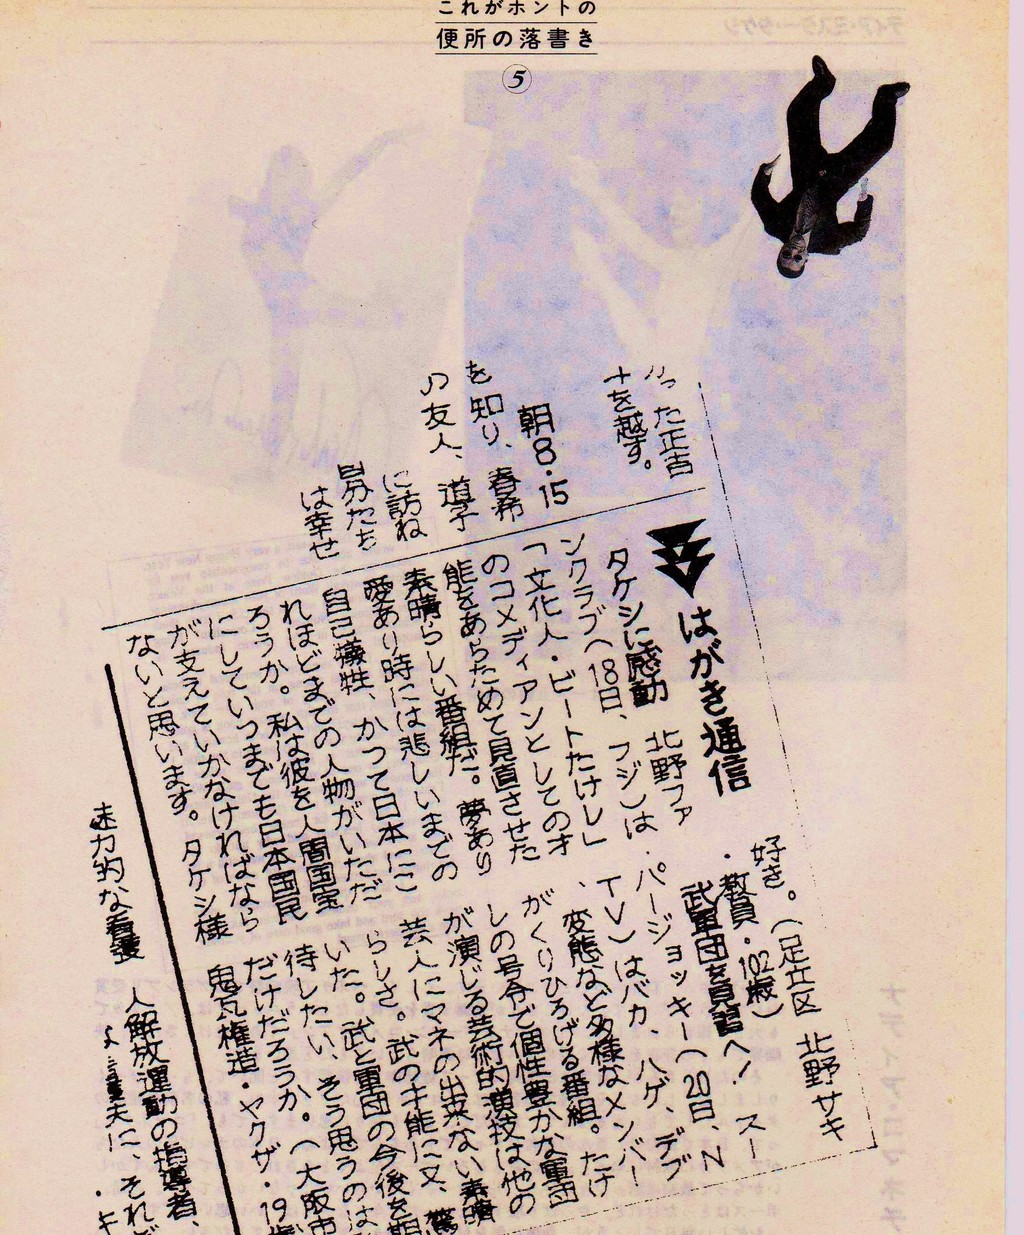 これがホントの
便所の落書き
5
った正吉
を越す。
朝8・15
を知り、春希
の友人、道子
に訪ね
自分たち
は幸せ
はがき通信
タケシに感動 北野ファ
ンクラブへ(18日、フジ)は
「文化人・ビートたけし」
のコメディアンとしてのオ
能をあらためて見直させた
素晴らしい番組だ。夢あり
愛あり時には悲しいまでの
自己犠牲、かつて日本にこ
れほどまでの人物がいただ
ろうか。私は彼を人間国宝
にしていつまでも日本国民
が支えていかなければなら
ないと思います。タケシ様
好き。(足立区 北野サキ
・教員・102歳)
武軍団を見習へ! スー
パージョッキー(20日、N
TV)はバカ、ハゲ、デブ
、変態など多様なメンバー
がくりひろげる番組。たけ
しの号令で個性豊かな軍団
が演じる芸術的演技は他の
芸人にマネの出来ない素晴
らしさ。武の才能に又、驚
いた。武と軍団の今後を期
待したい、そう思うのは
だけだろうか。(大阪市
鬼瓦権造・ヤクザ・19歳
人解放運動の指導者、
夫に、それど